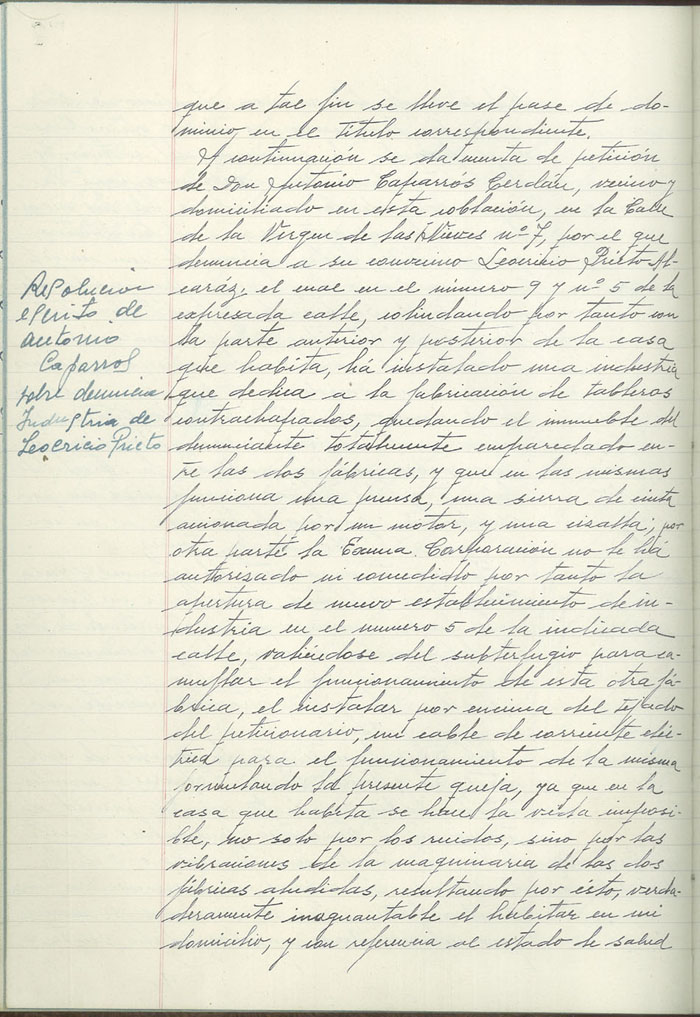 que a tal fin se lleve el pase de do-
minio, en el título correspondiente.
A continuación se da cuenta de petición
de Don Antonio Caparrós Cerdán, vecino y
domiciliado en esta población, en la Calle
de la Virgen de las Nieves nº 7, por el que
denuncia a su convecino Leoericio Prieto Al-
caráz, el cual en el número 9 y nº 5 de la
expresada calle, colindando por tanto con
la parte anterior y posterior de la casa
que habita, há instalado una industria
que dedica á la fabricación de tableros
contrachapados, quedando el inmueble del
denunciante totalmente emparedado en-
tre las dos fábricas, y que en las mismas
funciona una prensa, una sierra de cinta
accionada por un motor, y una cizalla; por
otra parte la Excma. Corporación no le há
autorizado ni concedidlo por tanto la
apertura de nuevo establecimiento de in-
dustria en el numero 5 de la indicada
calle, valiéndose del subterfugio para ca-
muflar el funcionamiento de esta otra fá-
brica, el instalar por encima del tejado
del peticionario, un cable de corriente eléc-
trica para el funcionamiento de la misma
formulando la presente queja, ya que en la
casa que habita se hace la vida imposi-
ble, no solo por los ruidos, sino por las
vibraciones de la maquinaria de las dos
fábricas aludidas, resultando por ésto, verda-
deramente inaguantable el habitar en mi
domicilio, y con referencia al estado de salud
Resolucion
escrito de
Antonio
Caparros
sobre denuncia
Industria de
Leoericio Prieto